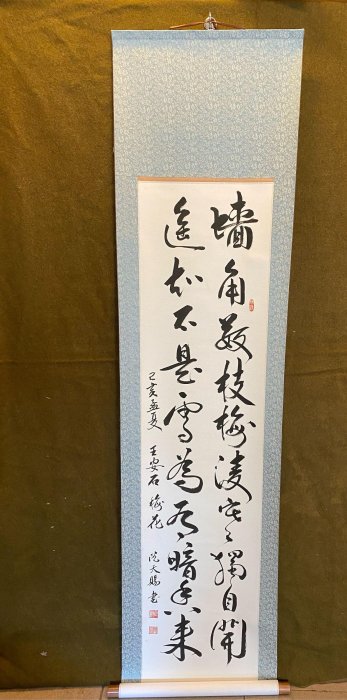 墻角數枝梅凌寒獨自開
遙知不是雪為有暗香來
己亥孟夏 王安石 梅花 大賜書